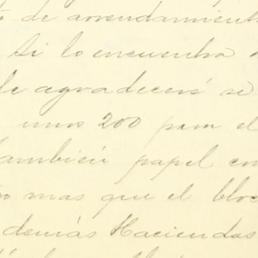 to de arrendamiento
Si lo encuentra
le agradeceré se
unos 200 para el
también papel con
mas que el bloc
demás Haciendas